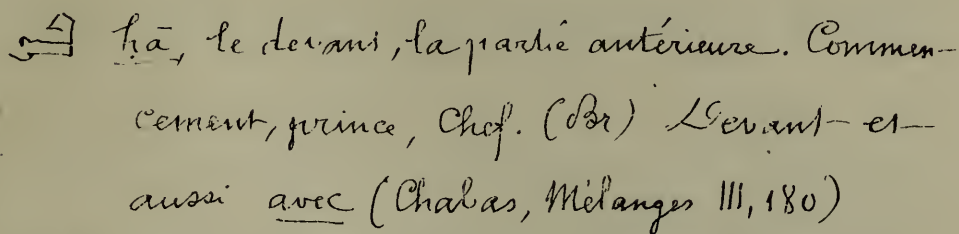 hā, le devant, la partie antérieure. Commen-
cement, prince, Chef. (Br) Devant et
aussi avec (Chabas, Mélanges III, 180)